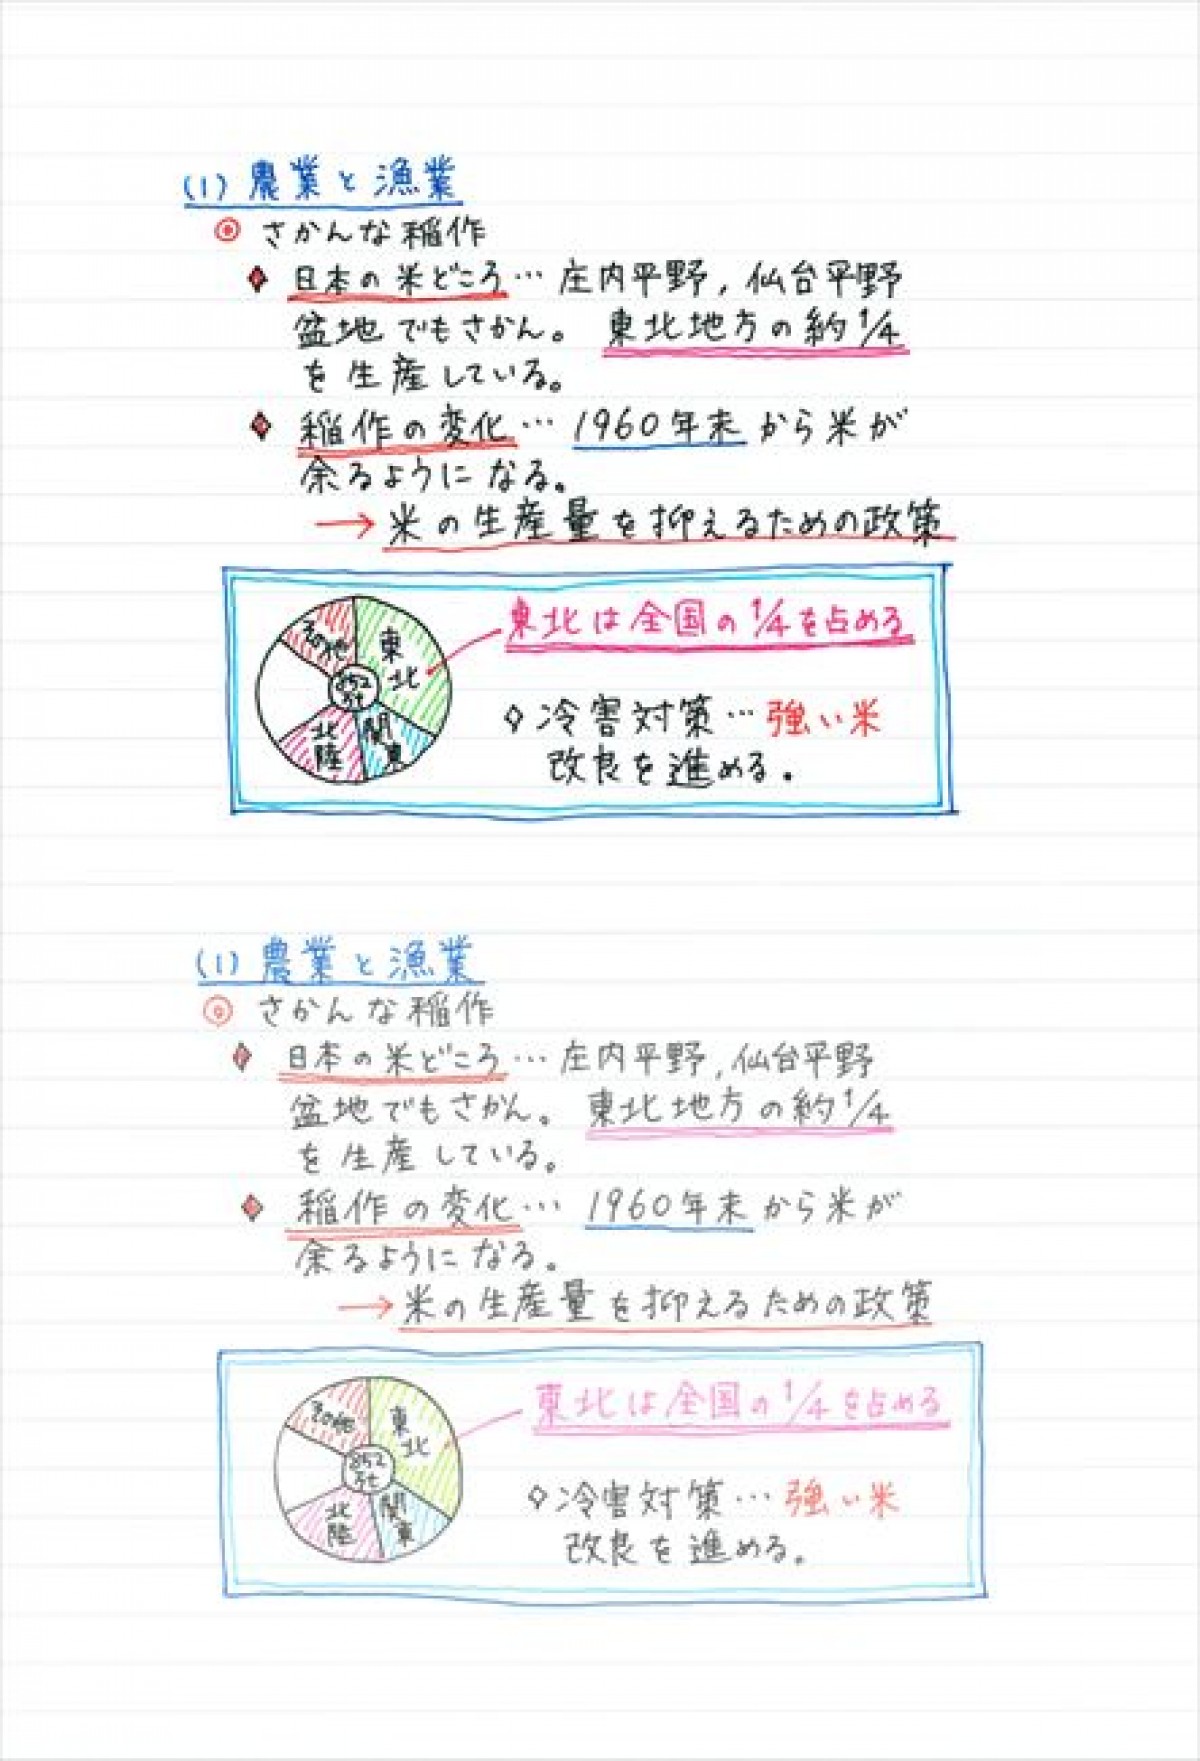 (1) 農業と漁業
◎ さかんな稲作
◆ 日本の米どころ… 庄内平野, 仙台平野
盆地でもさかん。 東北地方の約1/4
を生産している。
◆ 稲作の変化… 1960年末から米が
余るようになる。
→ 米の生産量を抑えるための政策
東北は全国の1/4を占める
その他
東北
852万t
関東
北陸
◇冷害対策…強い米
改良を進める.
(1) 農業と漁業
◎ さかんな稲作
◆ 日本の米どころ… 庄内平野, 仙台平野
盆地でもさかん。 東北地方の約1/4
を生産している。
◆ 稲作の変化… 1960年末から米が
余るようになる。
→ 米の生産量を抑えるための政策
東北は全国の1/4を占める
その他
東北
852万t
関東
北陸
◇冷害対策…強い米
改良を進める。